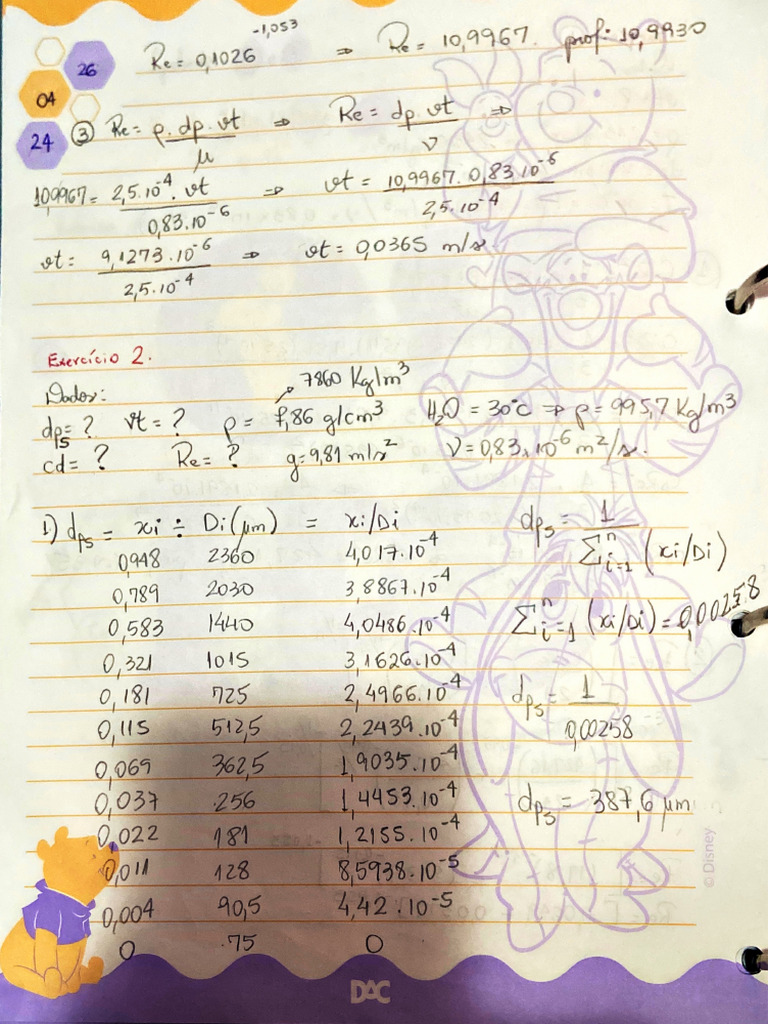 Re = 0,1026^-1,053 ⇒ Re = 10,9967. prof: 10,9930
26
04
24
③ Re = ρ.dp.vt / μ ⇒ Re = dp.vt / ν ⇒
10,9967 = 2,5.10^-4.vt / 0,83.10^-6 ⇒ vt = 10,9967.0,83.10^-6 / 2,5.10^-4
vt = 9,1273.10^-6 / 2,5.10^-4 ⇒ vt = 0,0365 m/s.
Exercício 2.
Dados:
7860 Kg/m³
dps = ? vt = ? ρ = 7,86 g/cm³ H₂O = 30°C ⇒ ρ = 995,7 Kg/m³
cd = ? Re = ? g = 9,81 m/s² ν = 0,83 x 10^-6 m²/s.
1) dps = xi ÷ Di(μm) = xi/Di
dps = 1 / Σ^n i=1 (xi/Di)
0,948 2360 4,017.10^-4
0,789 2030 3,8867.10^-4
0,583 1440 4,0486.10^-4
Σ^n i=1 (xi/Di) = 0,00258
0,321 1015 3,1626.10^-4
0,181 725 2,4966.10^-4
dps = 1 / 0,00258
0,115 512,5 2,2439.10^-4
0,069 362,5 1,9035.10^-4
0,037 256 1,4453.10^-4
dps = 387,6 μm
0,022 181 1,2155.10^-4
0,011 128 8,5938.10^-5
0,004 90,5 4,42.10^-5
0 75 0
© Disney
DAC